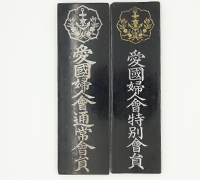 愛國婦人會通常會員
愛國婦人會特別會員